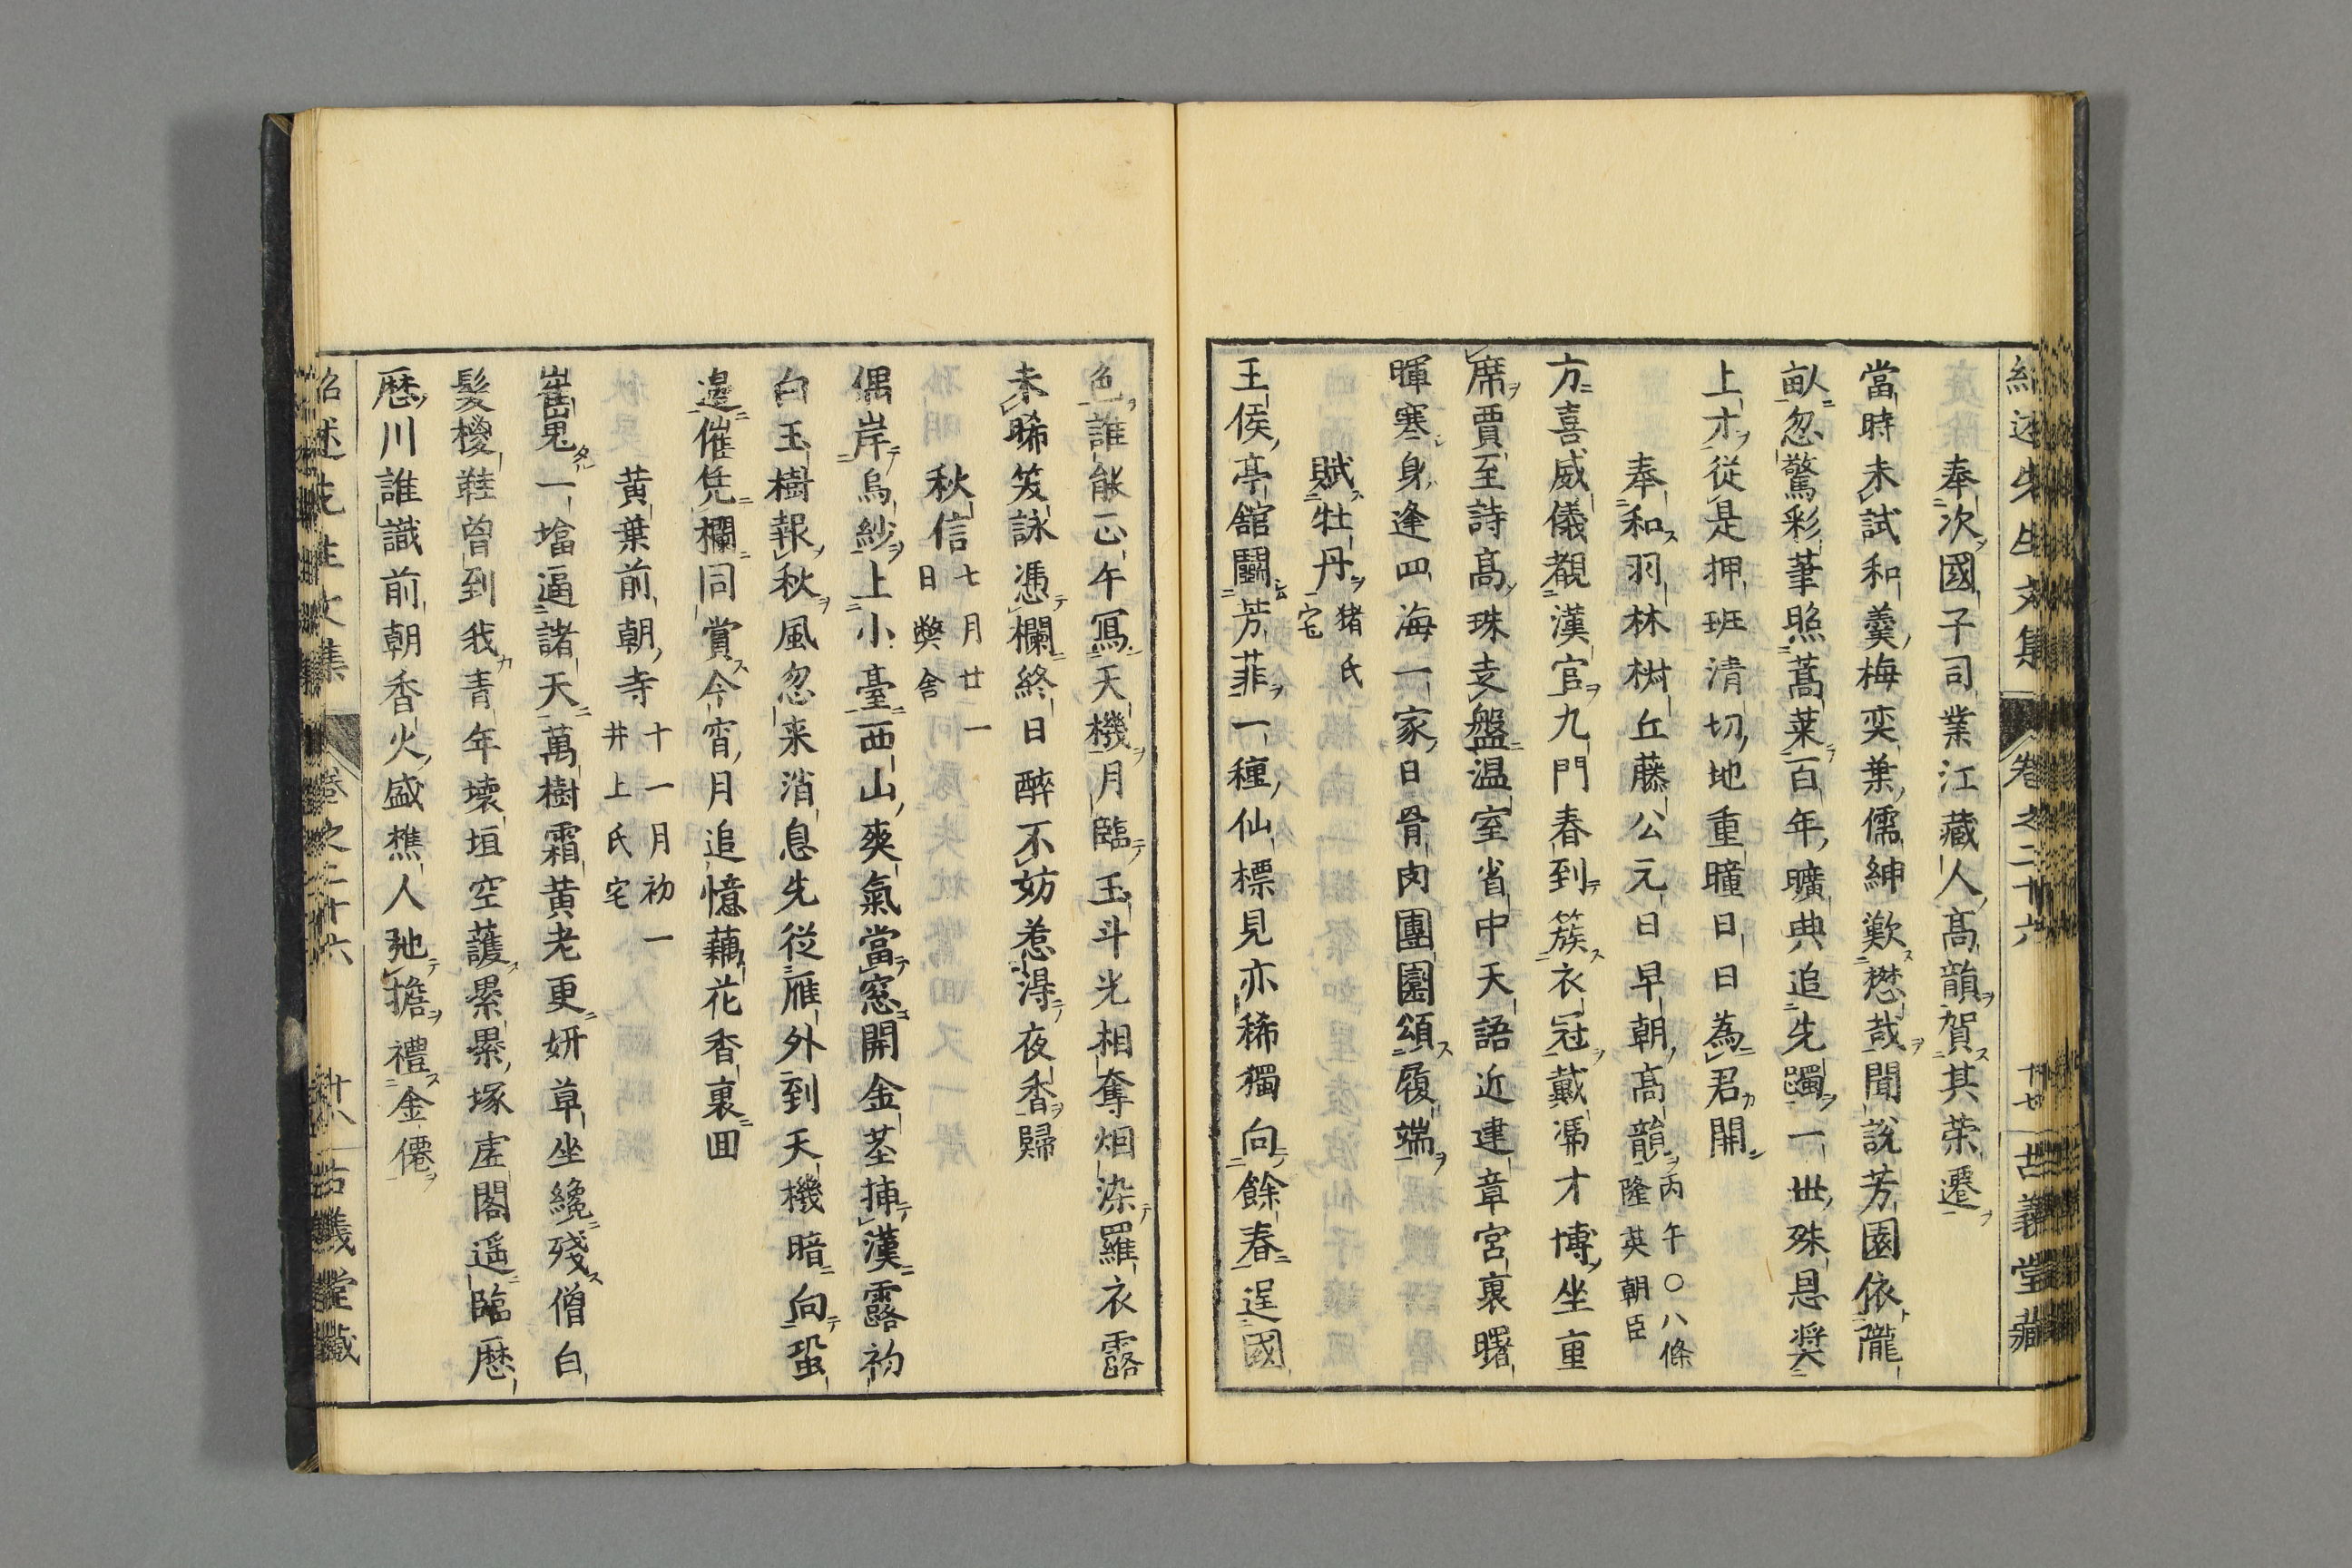 奉次國子司業江藏人高韻賀其荣遷
當時未試和羹梅奕葉儒紳歎懋哉聞說芳園依隴
畝忽驚彩筆照蒿莱百年曠典追先躅一世殊恩奨
上才從是押班清切地重曈日日為君開
奉和羽林樹丘藤公元日早朝高韻丙午〇八條隆英朝臣
方喜威儀覩漢官九門春到簇衣冠戴馮才博坐重
席賈至詩高珠走盤温室省中天語近建章宮裏曙
暉寒身逢四海一家日骨肉團圞頌履端
賦牡丹猪氏宅
王侯亭舘鬭芳菲一種仙標見亦稀獨向餘春逞國
色誰能正午冩天機月臨玉斗光相奪烟染羅衣露
未晞笑詠憑欄終日醉不妨惹得夜香歸
秋信七月廿一日獘舎
偶岸烏紗上小臺西山爽氣當窓開金茎捧漢露初
白玉樹報秋風忽来消息先従雁外到天機暗向蛩
邉催凭欄同賞今宵月追憶藕花香裏囬
黄葉前朝寺十一月初一井上氏宅
崔嵬一墖逼諸天萬樹霜黄老更妍草坐纔殘僧白
髪椶鞋曽到我青年壊垣空護纍纍塚虚閣遥臨歴
歴川誰識前朝香火盛樵人弛擔禮金僊
紹述先生文集
卷之二十六
十七
古義堂藏
紹述先生文集
卷之二十六
十八
古義堂藏